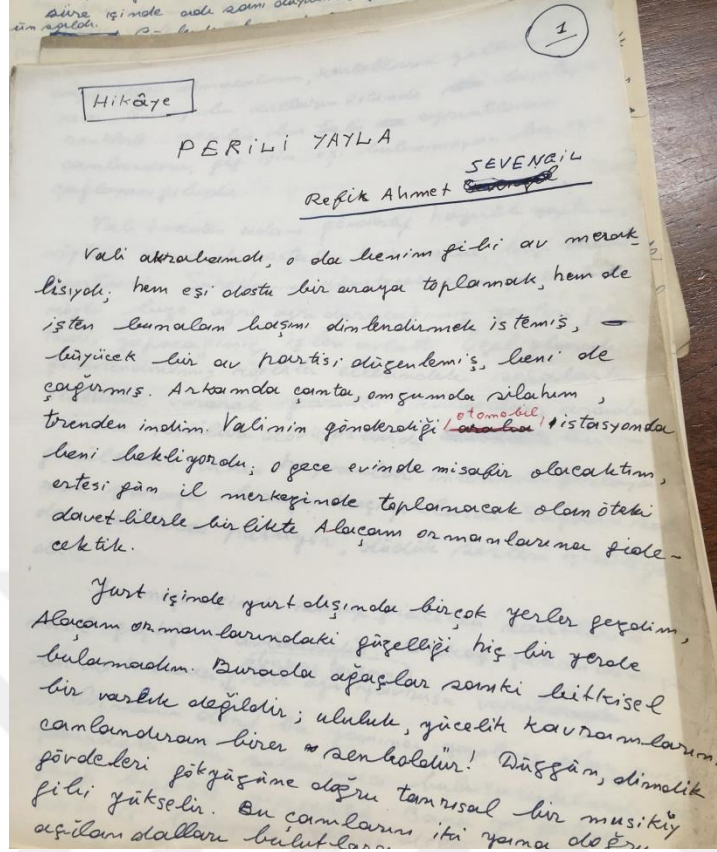 süre içinde adı sanı
ün saldı.
1
Hikâye
PERİLİ YAYLA
Refik Ahmet SEVENGİL
Vali akrabamdı, o da benim gibi av merak-
lısıydı; hem eşi dostu bir araya toplamak, hem de
işten bunalan başını dinlendirmek istemiş,
büyücek bir av partisi düzenlemiş, beni de
çağırmış. Arkamda çanta, omzumda silahım,
trenden indim. Valinin gönderdiği otomobil istasyonda
beni bekliyordu; o gece evinde misafir olacaktım,
ertesi gün il merkezinde toplanacak olan öteki
davetlilerle birlikte Alaçam ormanlarına gide-
cektik.
Yurt içinde yurt dışında birçok yerler gezdim,
Alaçam ormanlarındaki güzelliği hiç bir yerde
bulamadım. Burada ağaçlar sanki bitkisel
bir varlık değildir; ululuk, yücelik kavramlarını
canlandıran birer senboldür! Düzgün, dimdik
gövdeleri gökyüzüne doğru tanrısal bir musikiy
gibi yükselir. Bu çamların iki yana doğru
açılan dalları bulutlara